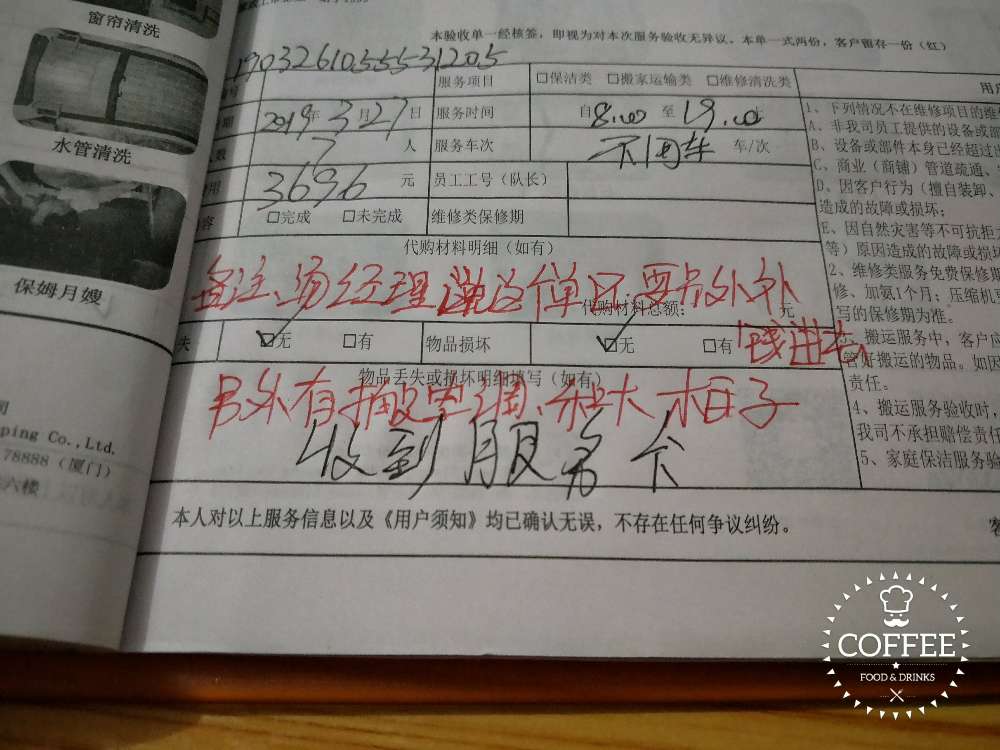 窗帘清洗
本验收单一经核签，即视为对本次服务验收无异议。本单一式两份，客户留存一份（红）
19032610555531205
服务项目 □保洁类 □搬家运输类 □维修清洗类
用户
2019年3月27日 服务时间 自8:00 至 19:00
1、下列情况不在维修项目的维
A、非我司员工提供的设备或部
水管清洗
7 人 服务车次 不用车 车/次
B、设备或部件本身已经超过
C、商业（商铺）管道疏通、
3696 元 员工工号（队长）
D、因客户行为（擅自装卸、
造成的故障或损坏；
□完成 □未完成 维修类保修期
E、因自然灾害等不可抗拒
代购材料明细（如有）
等）原因造成的故障或损坏
保姆月嫂
备注、汤经理说这个单只要另外补
2、维修类服务免费保修期
修、加氨1个月；压缩机
代购材料总额： 元
写的保修期为准。
失 ☑无 □有 物品损坏 ☑无 □有 钱进去
、搬运服务中，客户应
管好搬运的物品。如因
物品丢失或损坏明细填写（如有）
责任。
另外有搬空调、和大柜子
4、搬运服务验收时，
ping Co.,Ltd.
我司不承担赔偿责任
78888（厦门）
收到服务卡
5、家庭保洁服务验
六楼
本人对以上服务信息以及《用户须知》均已确认无误，不存在任何争议纠纷。
COFFEE
FOOD & DRINKS